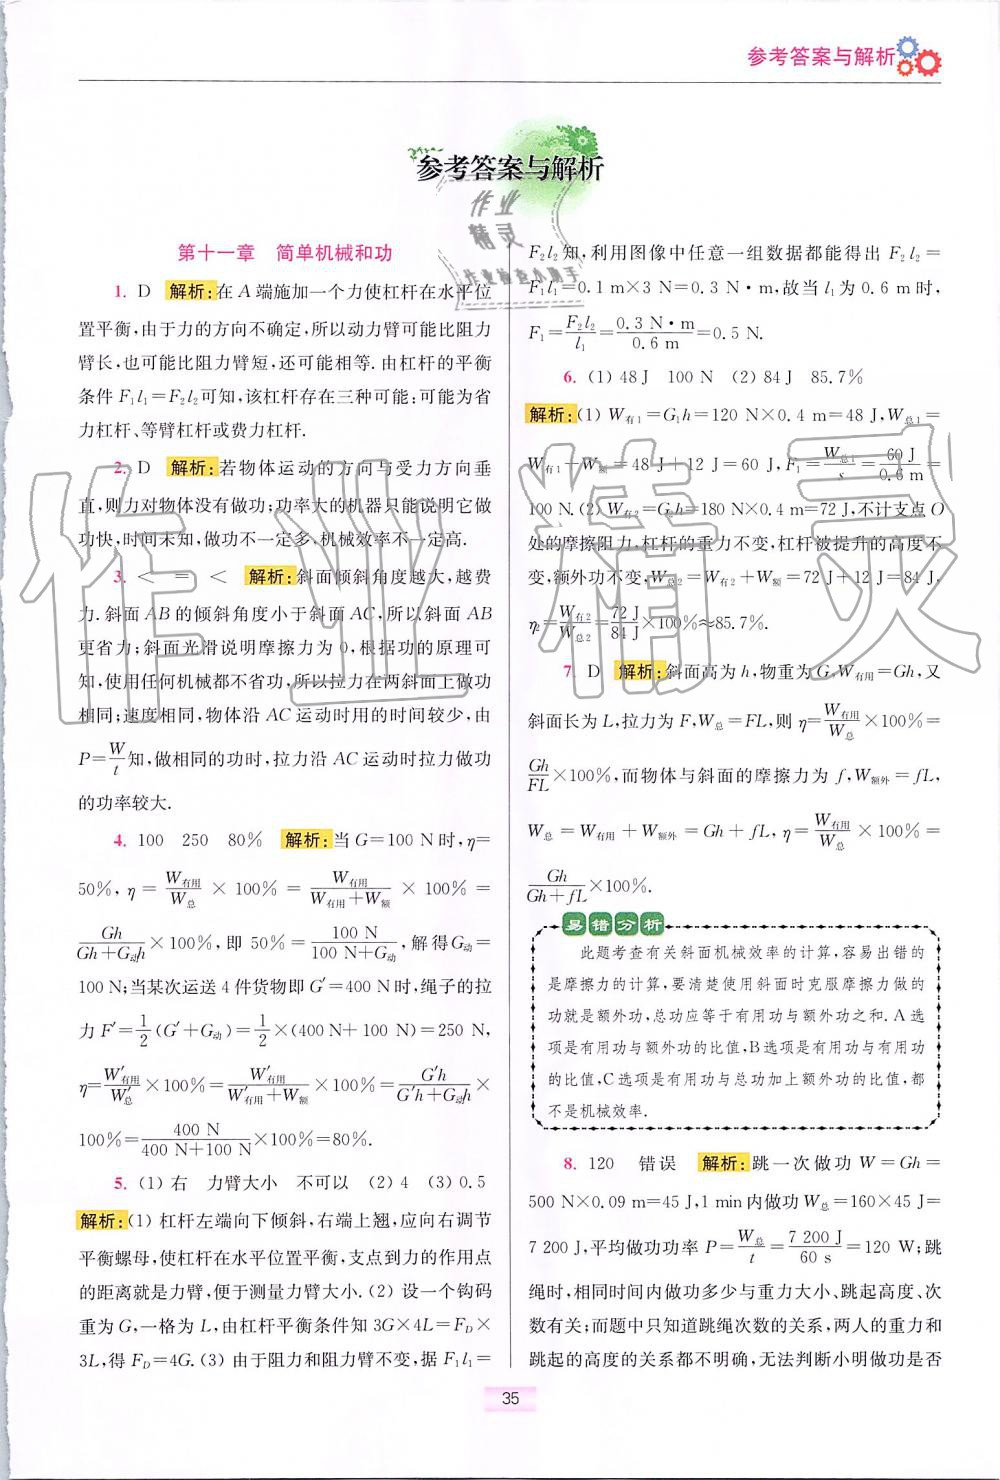 参考答案与解析
参考答案与解析
第十一章　简单机械和功
1. D 解析:在 A 端施加一个力使杠杆在水平位
置平衡,由于力的方向不确定,所以动力臂可能比阻力
臂长,也可能比阻力臂短,还可能相等. 由杠杆的平衡
条件 F₁l₁=F₂l₂可知,该杠杆存在三种可能:可能为省
力杠杆、等臂杠杆或费力杠杆.
2. D 解析:若物体运动的方向与受力方向垂
直,则力对物体没有做功;功率大的机器只能说明它做
功快,时间未知,做功不一定多,机械效率不一定高.
3. < = < 解析:斜面倾斜角度越大,越费
力. 斜面 AB 的倾斜角度小于斜面 AC,所以斜面 AB
更省力;斜面光滑说明摩擦力为 0,根据功的原理可
知,使用任何机械都不省功,所以拉力在两斜面上做功
相同;速度相同,物体沿 AC 运动时用的时间较少,由
P=W/t知,做相同的功时,拉力沿 AC 运动时拉力做功
的功率较大.
4. 100 250 80% 解析:当 G=100 N时,η=
50%,η=W有用/W总×100%=W有用/(W有用+W额)×100%=
Gh/(Gh+G动h)×100%,即 50%=100 N/(100 N+G动),解得G动=
100 N;当某次运送 4 件货物即 G′=400 N时,绳子的拉
力 F′=1/2(G′+G动)=1/2×(400 N+100 N)=250 N,
η=W′有用/W′总×100%=W′有用/(W′有用+W额)×100%=G′h/(G′h+G动h)×
100%=400 N/(400 N+100 N)×100%=80%.
5. (1) 右 力臂大小 不可以 (2) 4 (3) 0.5
解析:(1) 杠杆左端向下倾斜,右端上翘,应向右调节
平衡螺母,使杠杆在水平位置平衡,支点到力的作用点
的距离就是力臂,便于测量力臂大小. (2) 设一个钩码
重为 G,一格为 L,由杠杆平衡条件知 3G×4L=F_D×
3L,得 F_D=4G. (3) 由于阻力和阻力臂不变,据 F₁l₁=
F₂l₂知,利用图像中任意一组数据都能得出 F₂l₂=
F₁l₁=0.1 m×3 N=0.3 N·m,故当 l₁为 0.6 m时,
F₁=F₂l₂/l₁=0.3 N·m/0.6 m=0.5 N.
6. (1) 48 J 100 N (2) 84 J 85.7%
解析:(1) W有1=G₁h=120 N×0.4 m=48 J,W总1=
W有1+W额=48 J+12 J=60 J,F₁=W总1/s=60 J/0.6 m=
100 N. (2) W有2=G₂h=180 N×0.4 m=72 J,不计支点 O
处的摩擦阻力,杠杆的重力不变,杠杆被提升的高度不
变,额外功不变,W总2=W有2+W额=72 J+12 J=84 J,
η₂=W有2/W总2=72 J/84 J×100%≈85.7%.
7. D 解析:斜面高为 h,物重为 G,W有用=Gh,又
斜面长为 L,拉力为 F,W总=FL,则 η=W有用/W总×100%=
Gh/FL×100%,而物体与斜面的摩擦力为 f,W额外=fL,
W总=W有用+W额外=Gh+fL,η=W有用/W总×100%=
Gh/(Gh+fL)×100%.
易错分析
此题考查有关斜面机械效率的计算,容易出错的
是摩擦力的计算,要清楚使用斜面时克服摩擦力做的
功就是额外功,总功应等于有用功与额外功之和. A 选
项是有用功与额外功的比值,B 选项是有用功与有用功
的比值,C 选项是有用功与总功加上额外功的比值,都
不是机械效率.
8. 120 错误 解析:跳一次做功 W=Gh=
500 N×0.09 m=45 J,1 min内做功 W总=160×45 J=
7 200 J,平均做功功率 P=W总/t=7 200 J/60 s=120 W;跳
绳时,相同时间内做功多少与重力大小、跳起高度、次
数有关;而题中只知道跳绳次数的关系,两人的重力和
跳起的高度的关系都不明确,无法判断小明做功是否
35
作业精灵
作业
精灵
作业检查小助手